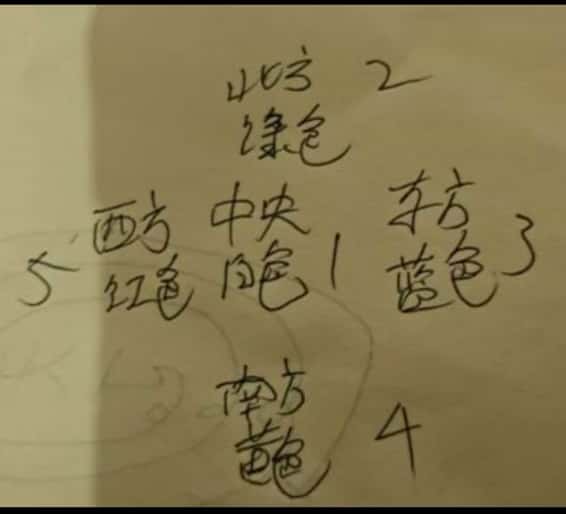 北方 2
绿色
西方
红色 5
中央
白色 1
东方
蓝色 3
南方
黄色 4